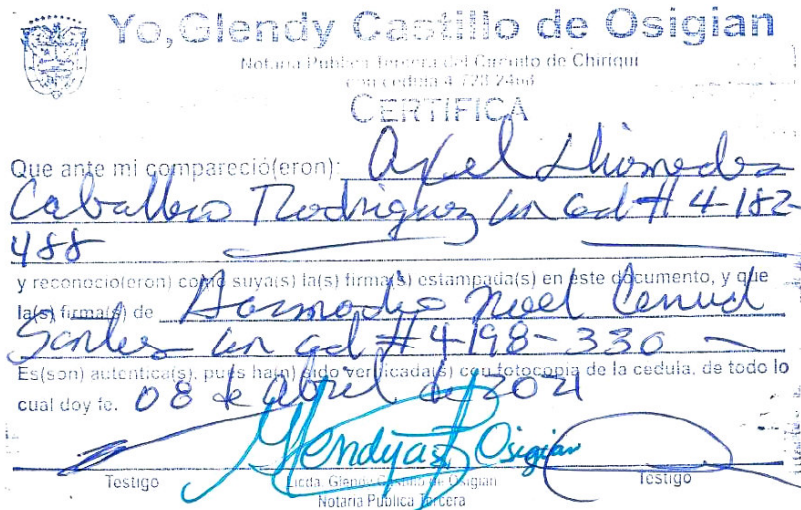 Yo, Glendy Castillo de Osigian
Notaria Pública Tercera del Circuito de Chiriquí
con cedula 4-728-2468
CERTIFICA
Que ante mi compareció(eron):
Caballero Rodriguez con ced # 4-182-
488
y reconocio(eron) como suya(s) la(s) firma(s) estampada(s) en este documento, y que
la(s) firma(s) de Noel
Santos con ced # 4-198-330
Es(son) autentica(s), pues ha(n) sido verificada(s) con fotocopia de la cedula, de todo lo
cual doy fe. 08 de abril de 2021
Glendy Cast Osigian
Testigo Licda. Glendy Castillo de Osigian Testigo
Notaria Pública Tercera